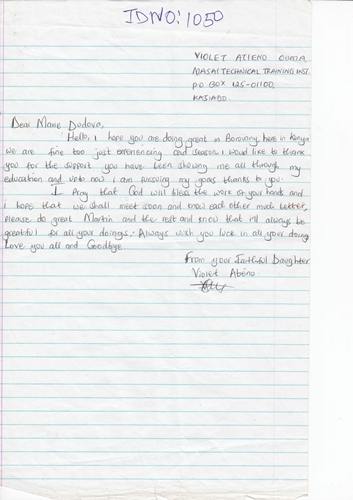 IDNO: 1050
VIOLET ATIENO OUMA
MASAI TECHNICAL TRAINING INST.
P.O BOX 125-01100,
KAJIADO.
Dear Marie Dudova,
Hello, I hope you are doing great in Boroviny, here in Kenya
we are fine too just experiencing cold season. I would like to thank
you for the support you have been showing me all through my
education and upto now i am pursuing my goals thanks to you
I Pray that God will bless the work of your hands and
i hope that we shall meet soon and know each other much better,
please do great Martin and the rest and know that i'll always be
greatful for all your doings. Always wish you luck in all your doing
Love you all and Goodbye.
From your Faithful Daughter
Violet Atieno